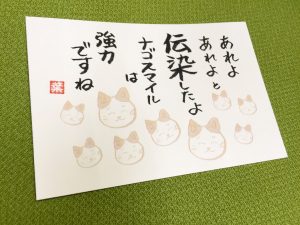 あれよ
あれよと
伝染したよ
ナゴスマイル
は
強力
ですね